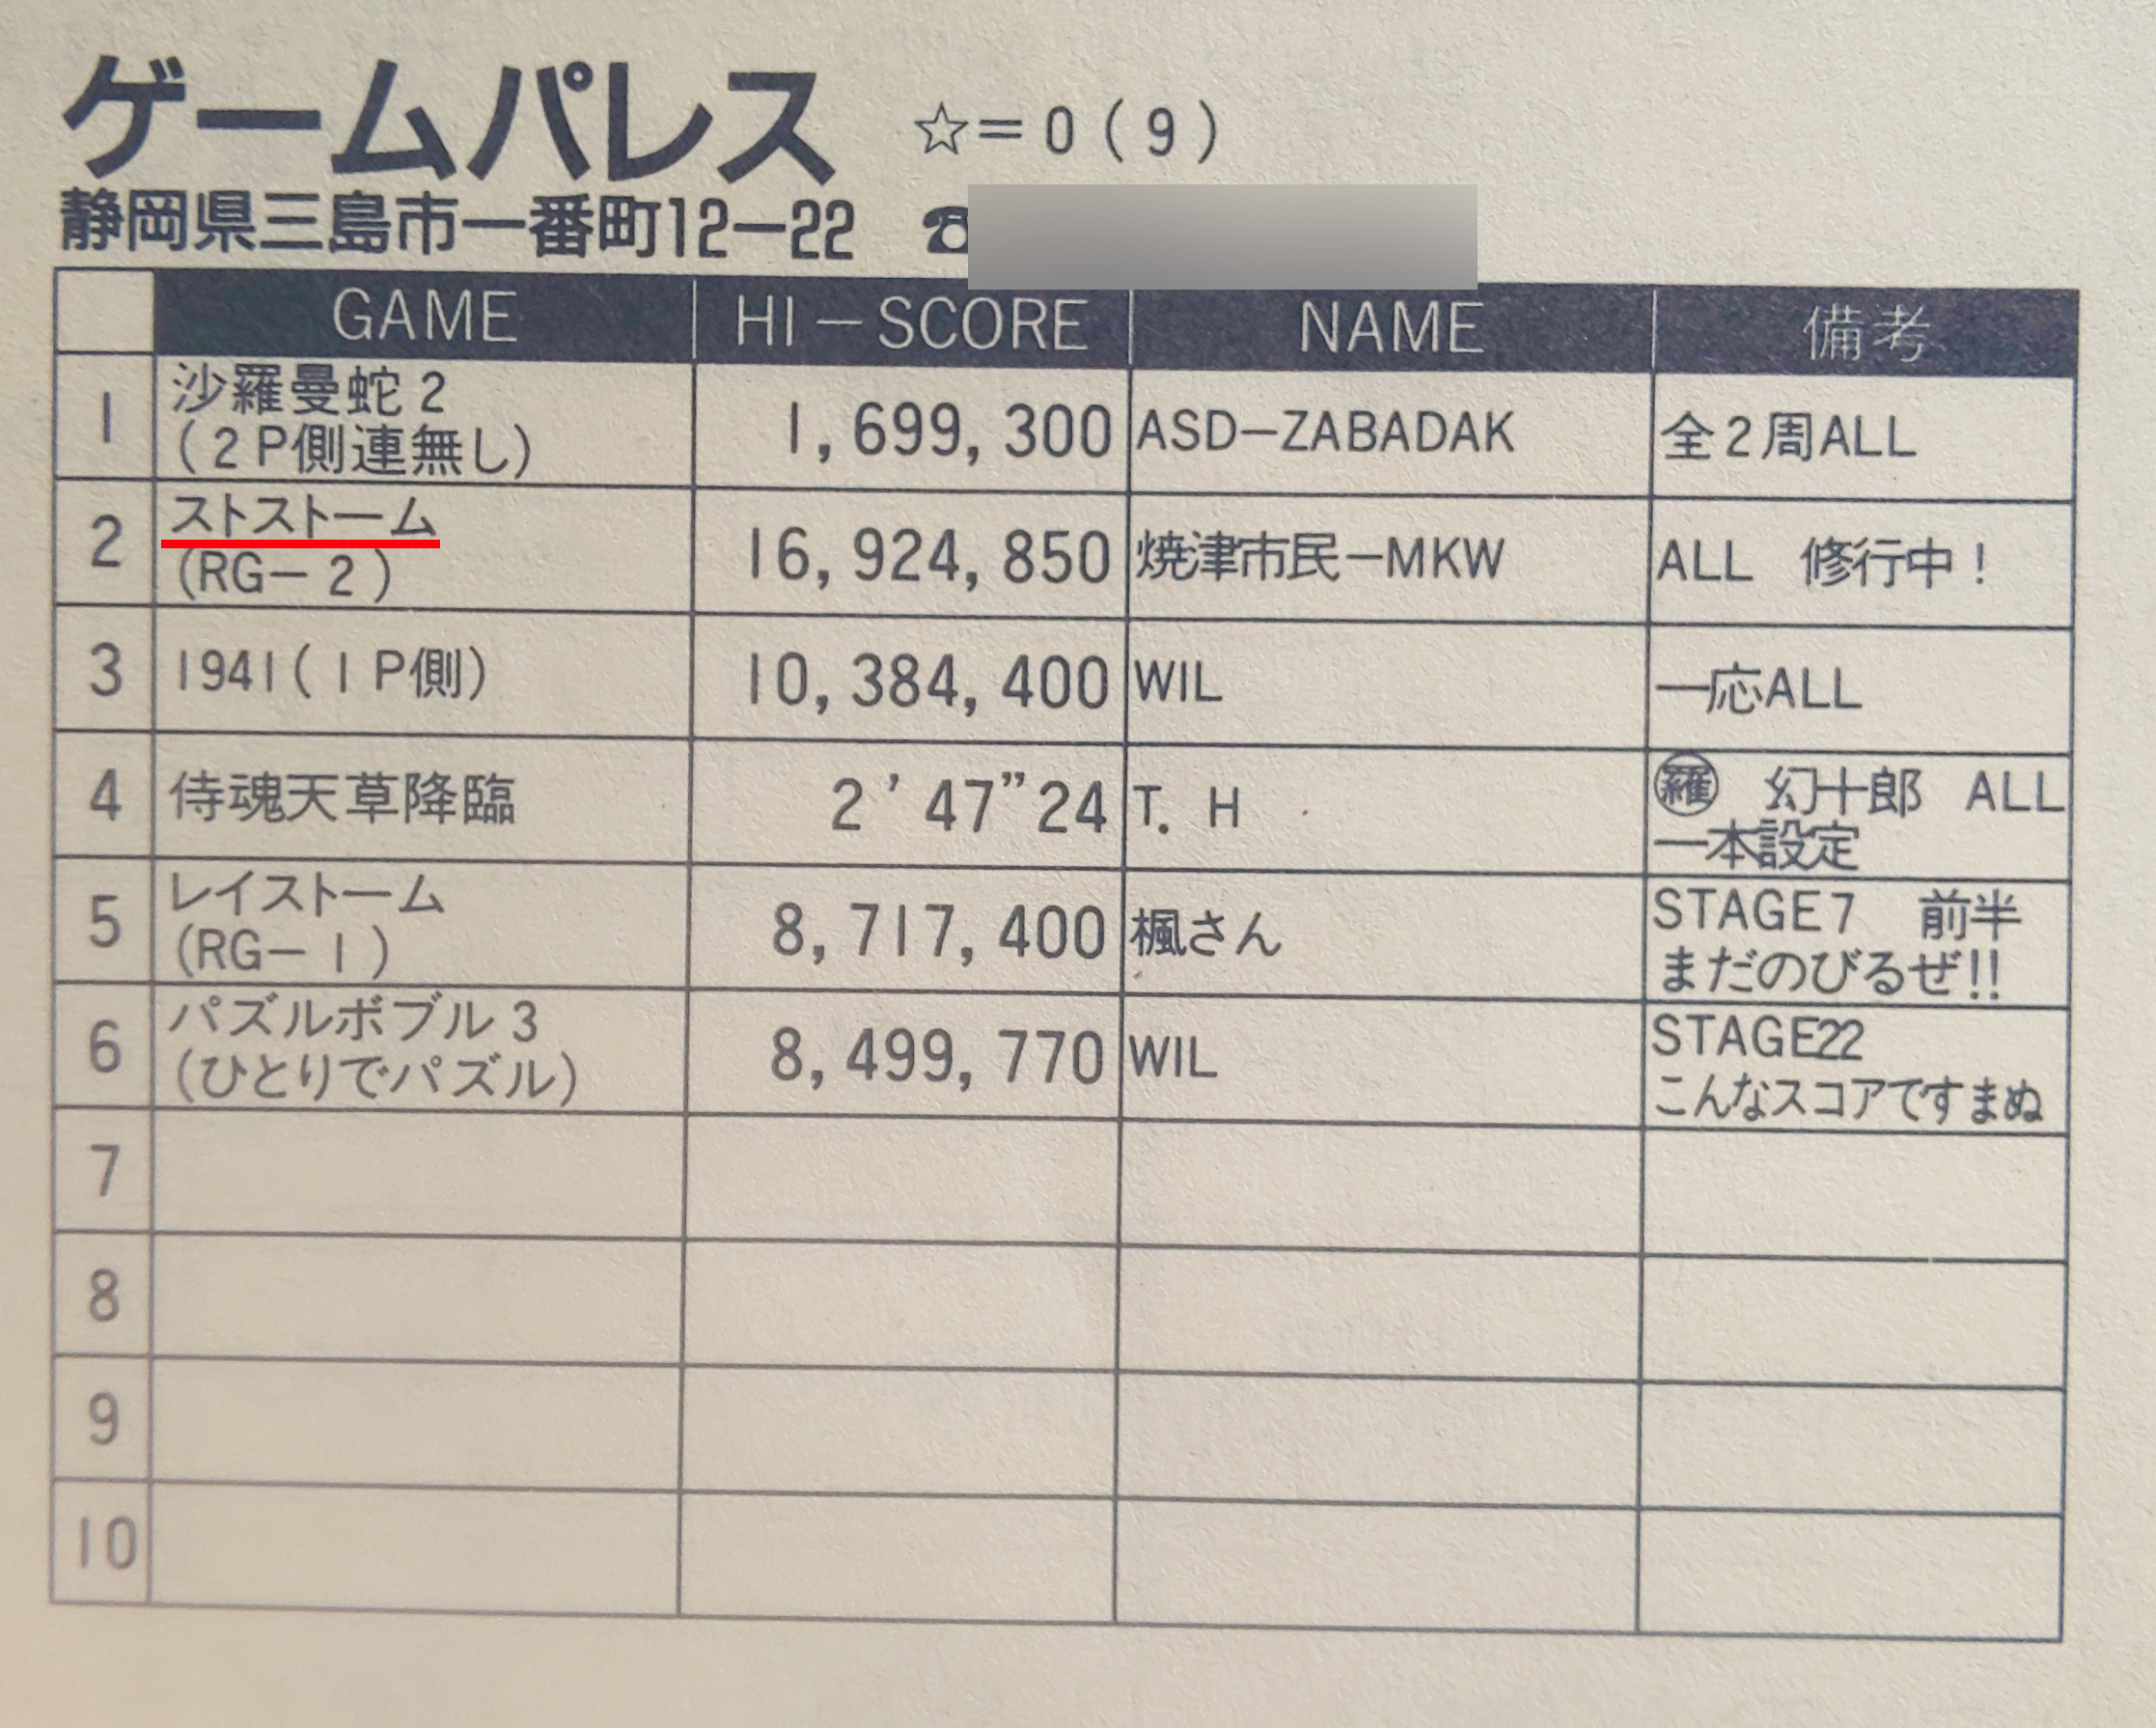 ゲームパレス ☆=0(9)
静岡県三島市一番町12−22 ☎
GAME HI−SCORE NAME 備考
1 沙羅曼蛇2 (2P側連無し) 1,699,300 ASD−ZABADAK 全2周ALL
2 ストストーム (RG−2) 16,924,850 焼津市民−MKW ALL 修行中!
3 1941(1P側) 10,384,400 WIL 一応ALL
4 侍魂天草降臨 2'47"24 T.H ㊍羅 幻十郎 ALL 一本設定
5 レイストーム (RG−1) 8,717,400 楓さん STAGE7 前半 まだのびるぜ!!
6 パズルボブル3 (ひとりでパズル) 8,499,770 WIL STAGE22 こんなスコアですまぬ
7
8
9
10